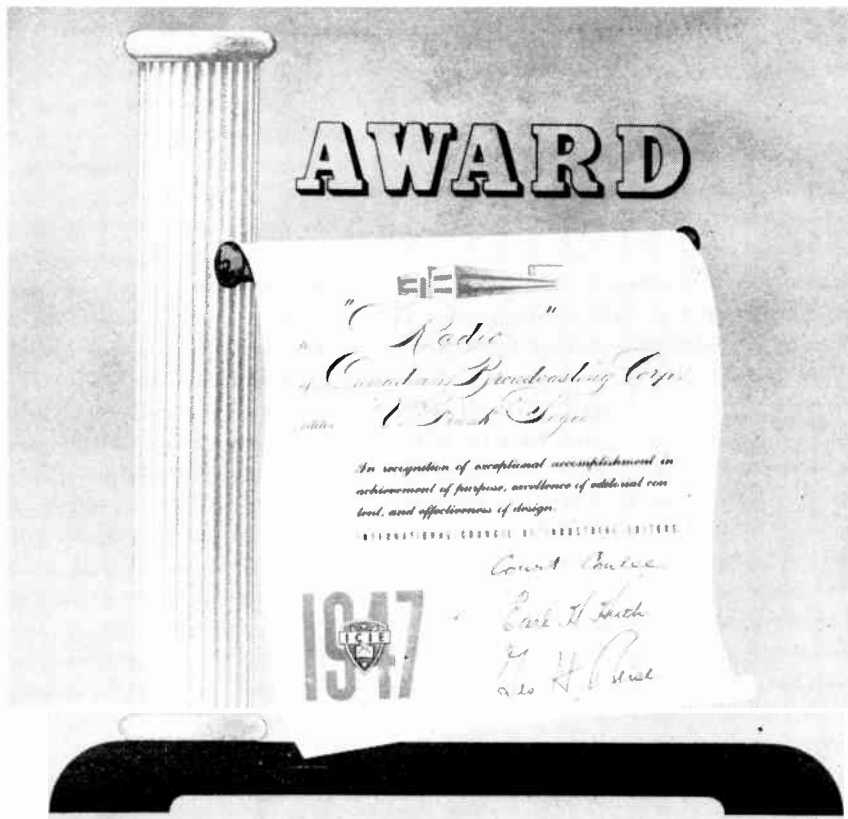 AWARD
"Radio"
of Canadian Broadcasting Corp.
editor
In recognition of exceptional accomplishment in
achievement of purpose, excellence of editorial con
tent, and effectiveness of design.
INTERNATIONAL COUNCIL OF INDUSTRIAL EDITORS
Court
Earl H
Geo H
1947
ICIE